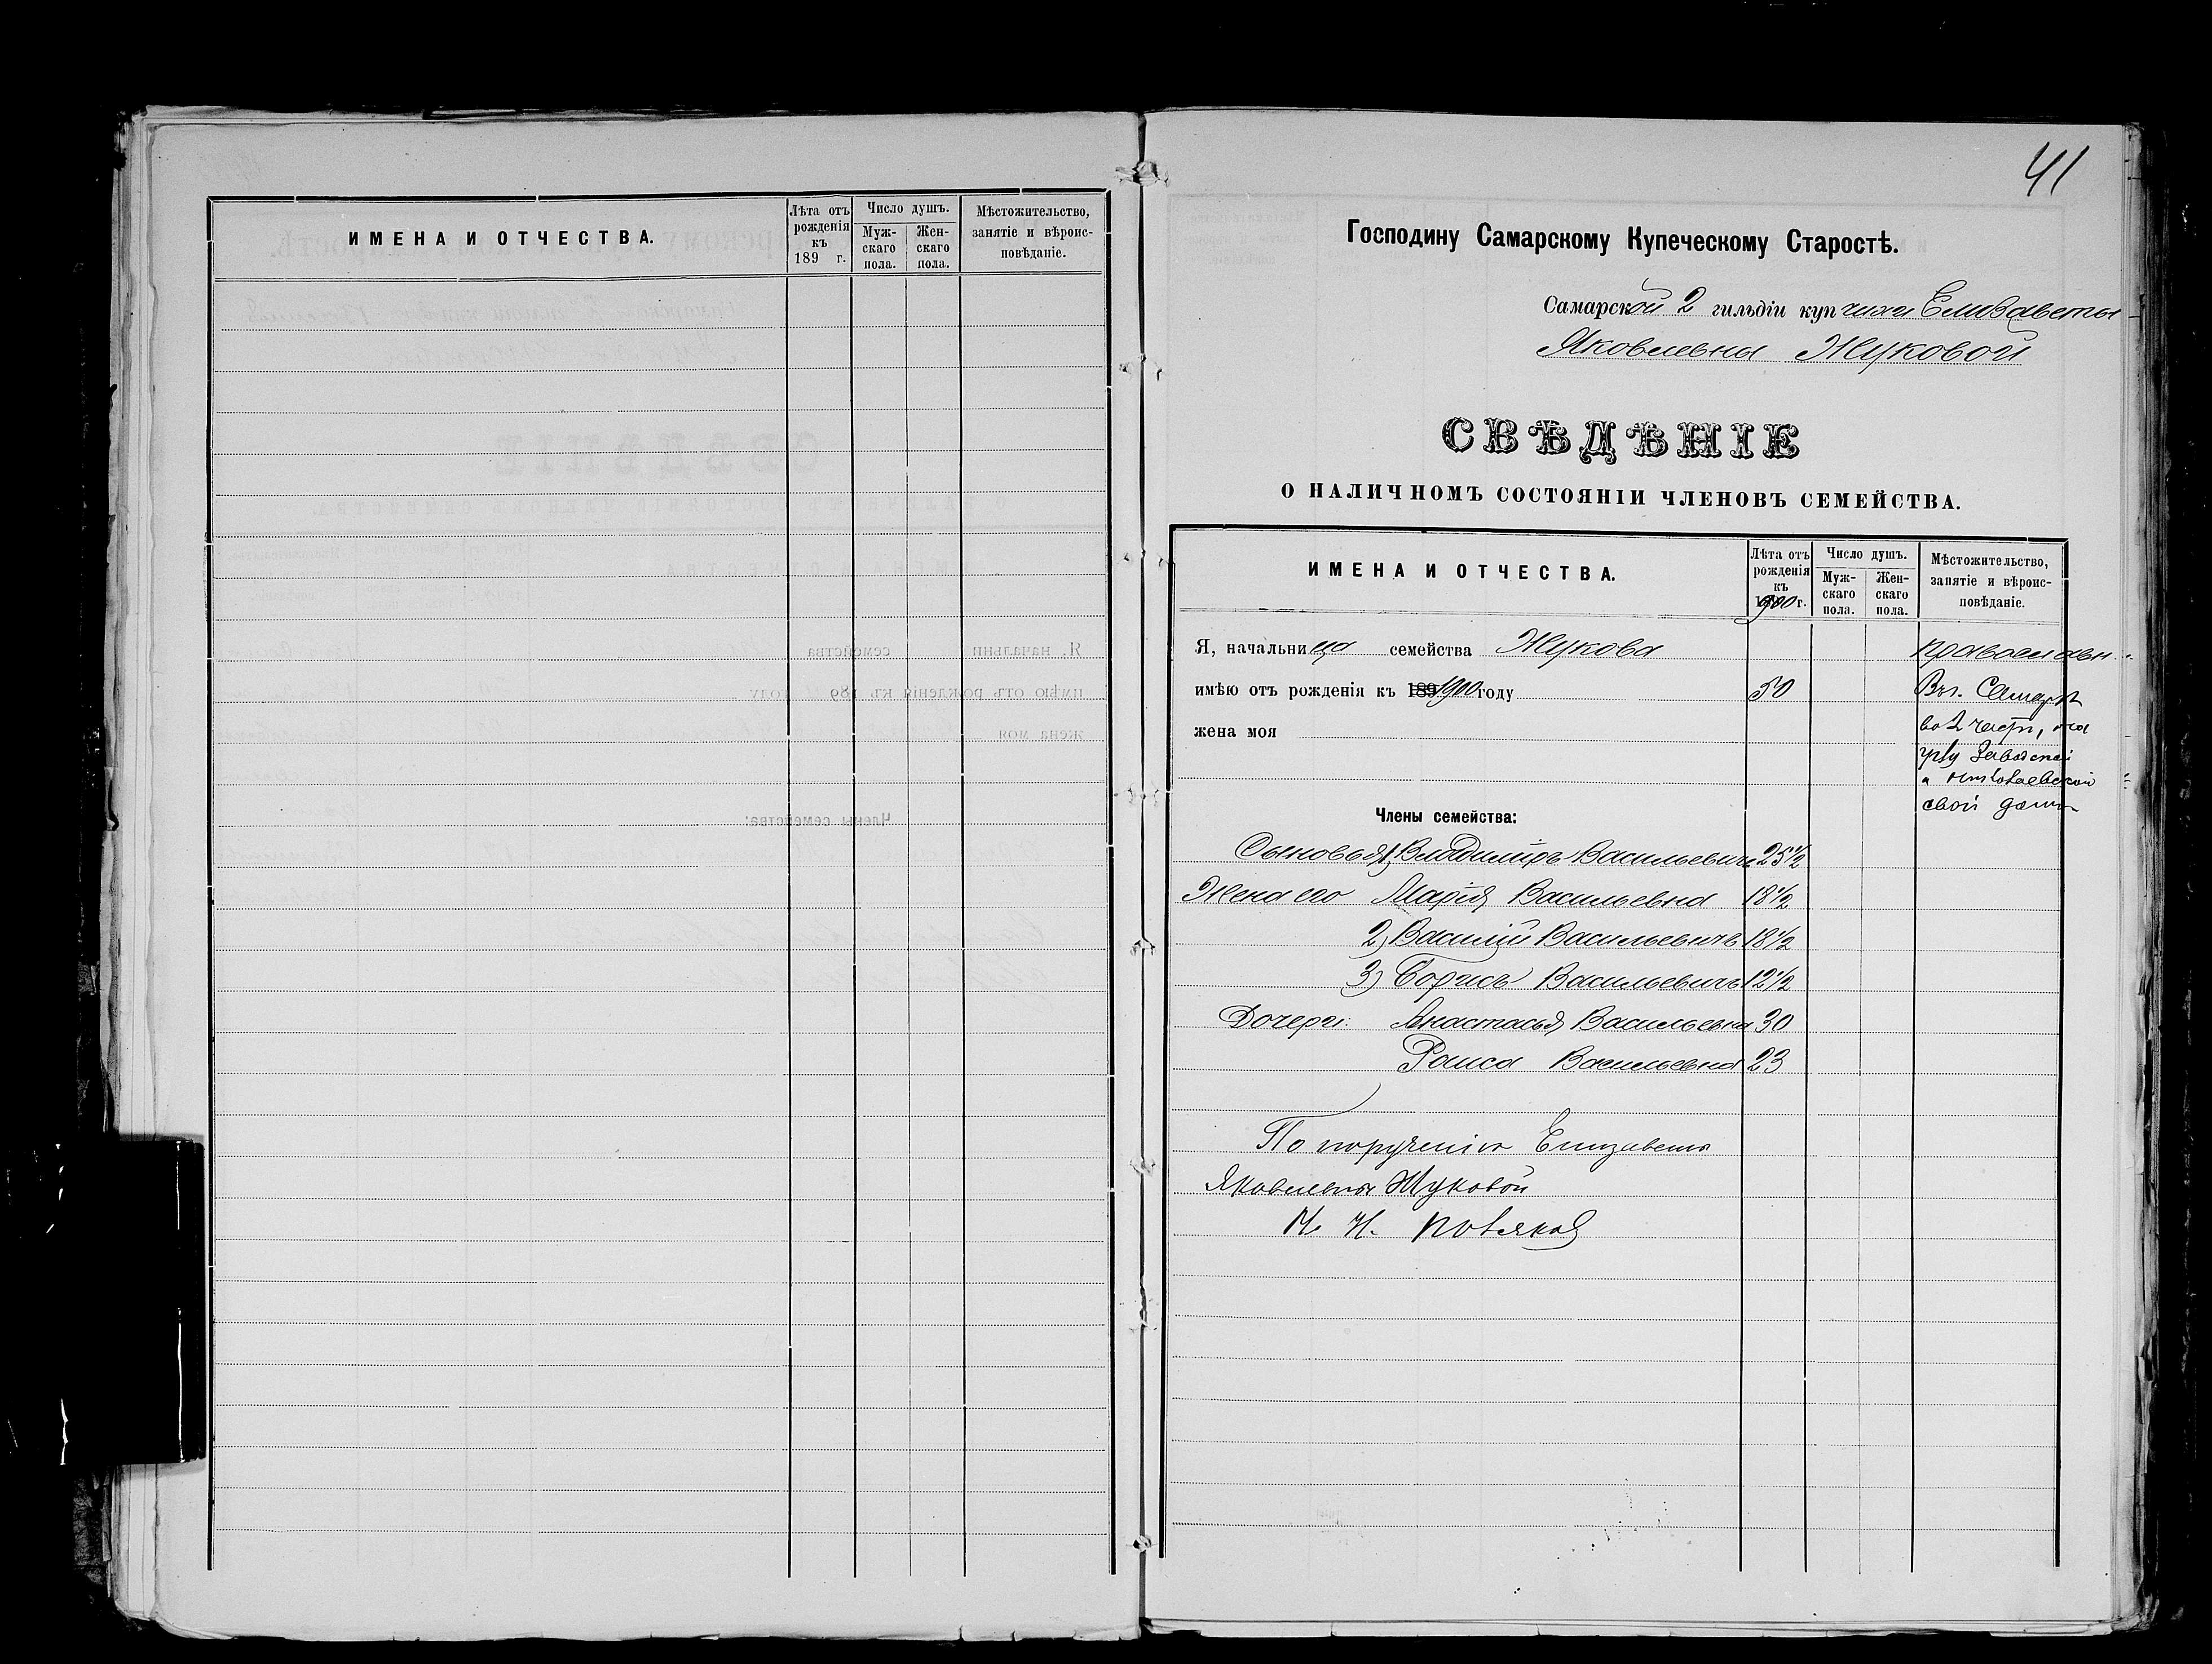 ИМЕНА И ОТЧЕСТВА.
Лѣта отъ рожденія къ 189 г.
Число душъ.
Муж-скаго пола.
Жен-скаго пола.
Мѣстожительство, занятіе и вѣроис-повѣданіе.
41
Господину Самарскому Купеческому Старостѣ.
Самарской 2 гильдіи купчихи Елизаветы
Яковлевны Жуковой
СВѢДѢНІЕ
О НАЛИЧНОМЪ СОСТОЯНІИ ЧЛЕНОВЪ СЕМЕЙСТВА.
ИМЕНА И ОТЧЕСТВА.
Лѣта отъ рожденія къ 1900 г.
Число душъ.
Муж-скаго пола.
Жен-скаго пола.
Мѣстожительство, занятіе и вѣроис-повѣданіе.
Я, начальница семейства Жукова православн.
имѣю отъ рожденія къ 189 1900 году 50 Въ г. Самарѣ
жена моя во 2 части, на
углу Заводской
и Николаевской
свой домъ
Члены семейства:
Сыновья 1) Владиміръ Васильевичъ 25 1/2
Жена его Марія Васильевна 18 1/2
2) Василій Васильевичъ 18 1/2
3) Борисъ Васильевичъ 12 1/2
Дочери: Анастасія Васильевна 30
Раиса Васильевна 23
По порученію Елизаветы
Яковлевны Жуковой